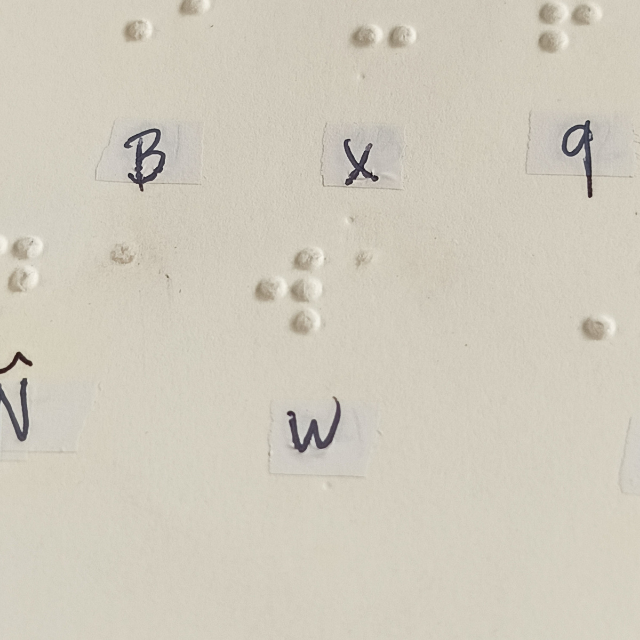 B x q
Ñ w